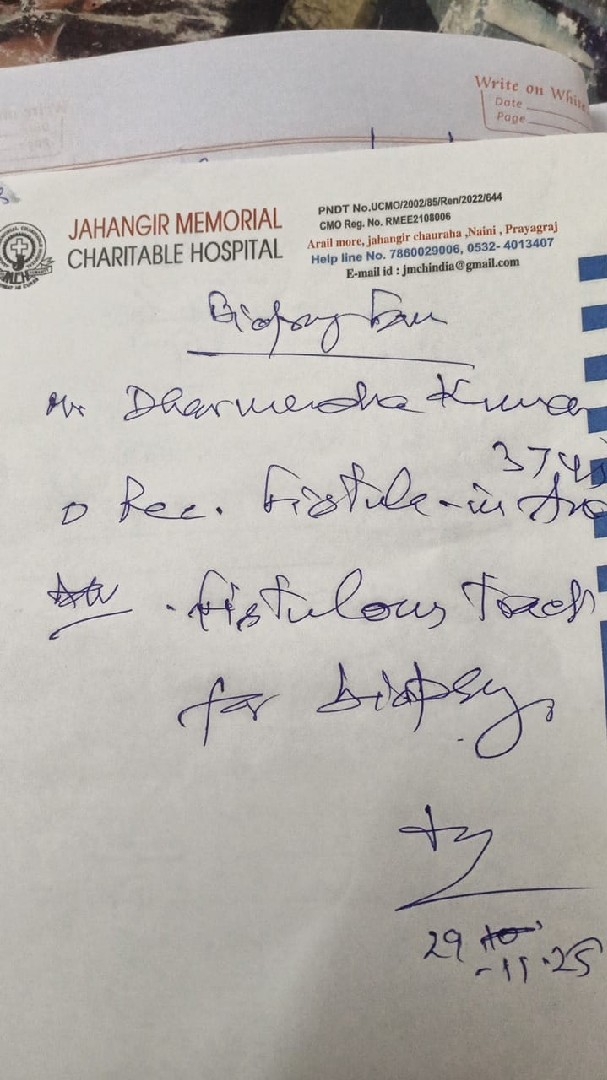 Write on Whi
Date
Page
JAHANGIR MEMORIAL
CHARITABLE HOSPITAL
PNDT No.UCMO/2002/85/Ren/2022/644
CMO Reg. No. RMEE2108006
Arail more, jahangir chauraha ,Naini , Prayagraj
Help line No. 7860029006, 0532- 4013407
E-mail id : jmchindia@gmail.com
Biopsy
Mr Dharmendra Kumar
37
Rec. Fistula-in Ano
Fistulous Tract
for biopsy
29
-11.25